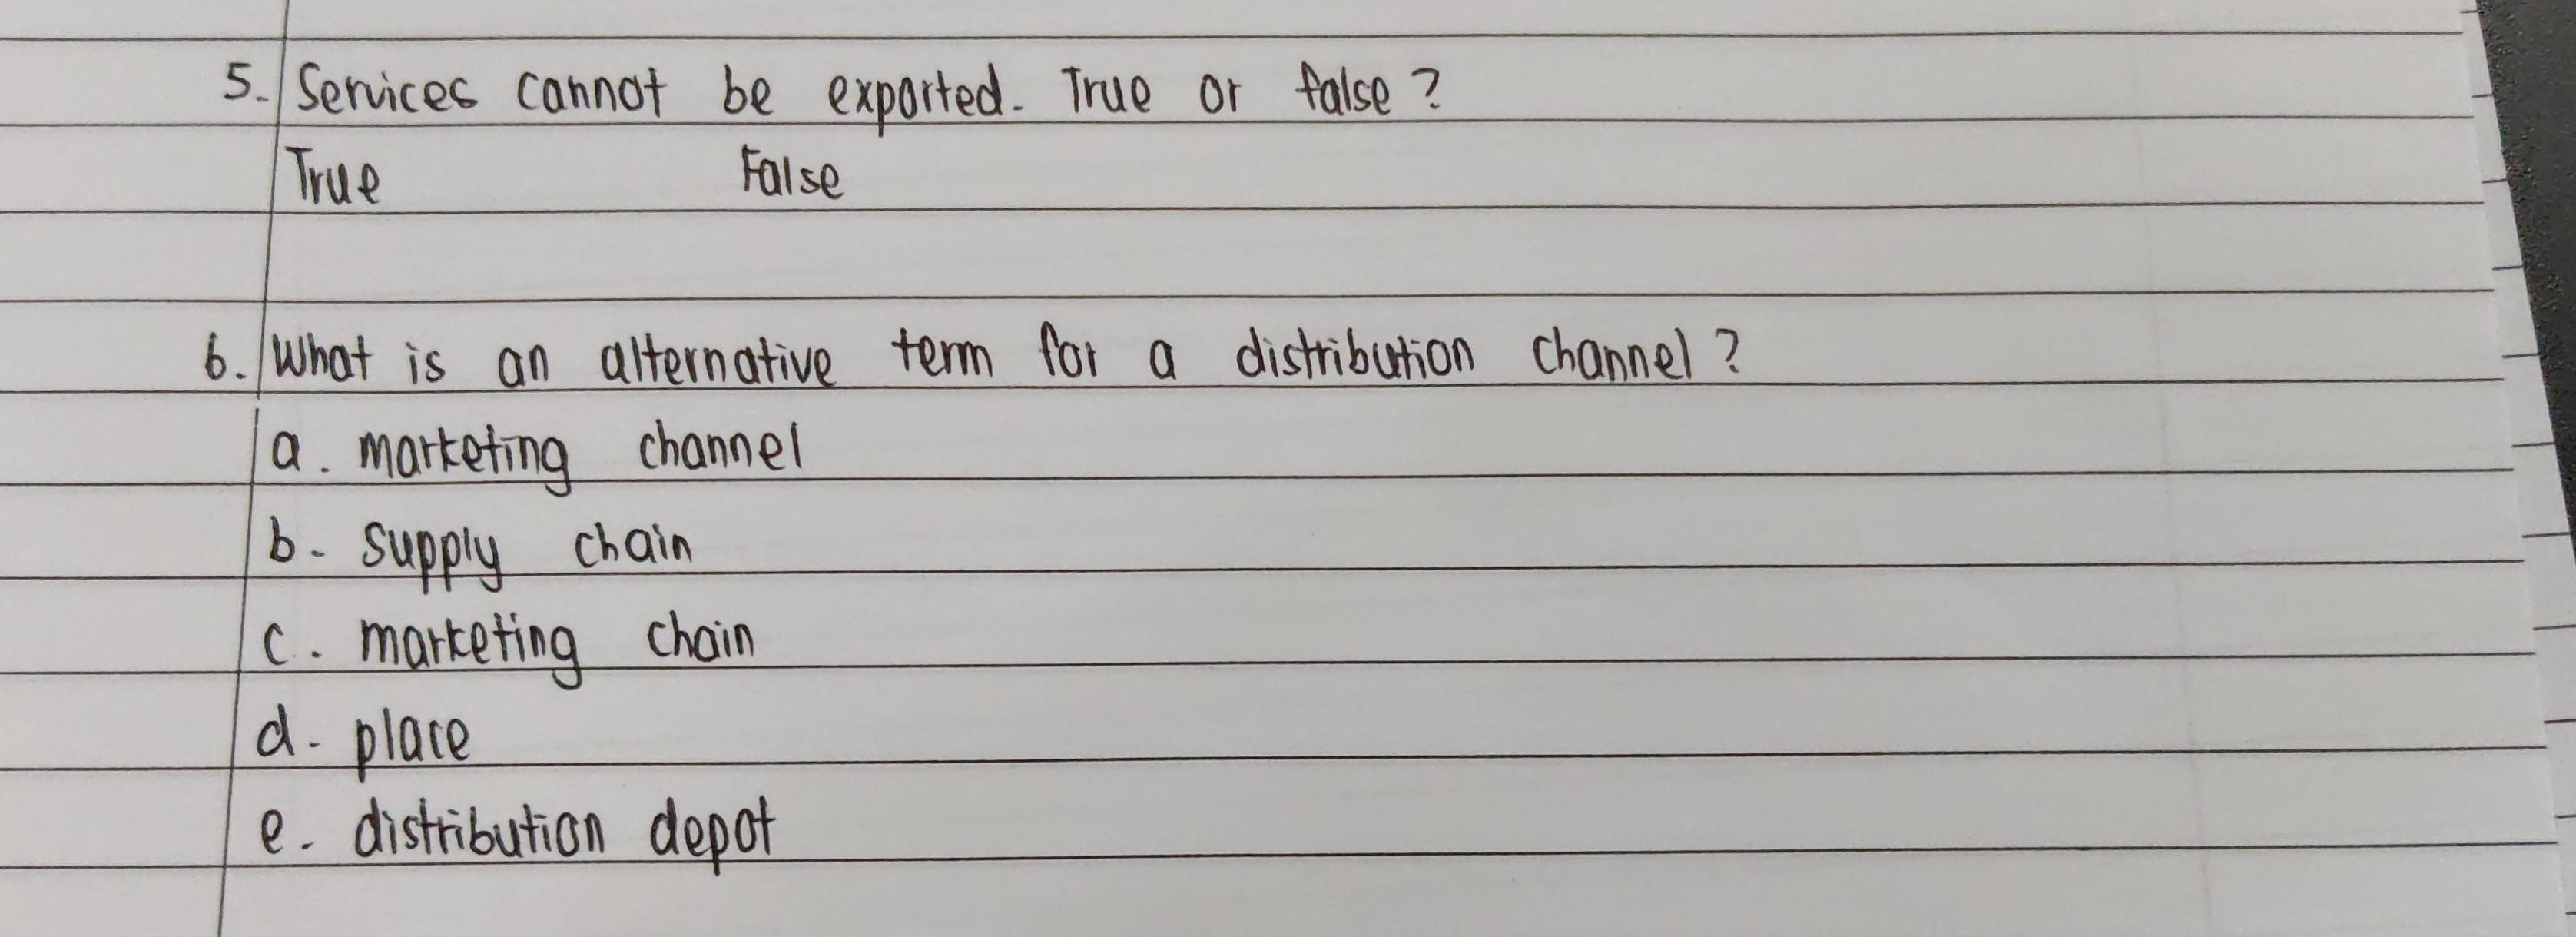 5. Services cannot be exported. True or false?
True False
6. What is an alternative term for a distribution channel?
a. marketing channel
b. supply chain
c. marketing chain
d. place
e. distribution depot